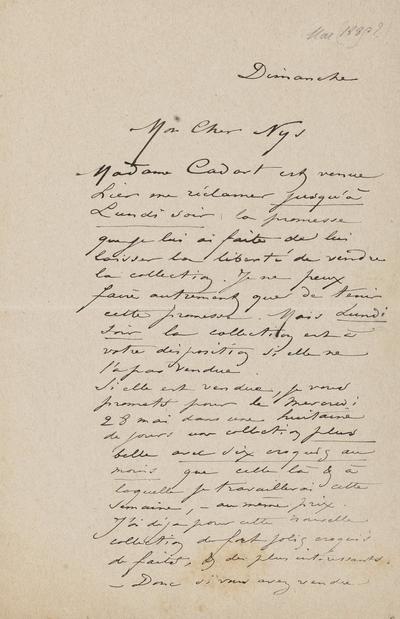 Mai (1890?)
Dimanche
Mon Cher Nys
Madame Cadart est venue
hier me réclamer jusqu'à
Lundi soir, la promesse
que je lui ai faite de lui
laisser la liberté de vendre
la collection. Je ne peux
faire autrement que de tenir
cette promesse. Mais Lundi
soir la collection est à
votre disposition si elle ne
l'a pas vendue.
Si elle est vendue, je vous
promets pour le Mercredi
28 mai dans une huitaine
de jours une collection plus
belle avec six croquis au
moins que celle là & à
laquelle je travaillerai cette
semaine, – au même prix.
J'ai déjà pour cette nouvelle
collection de fort jolis croquis
de faits, & des plus intéressants.
– Donc si vous avez vendre